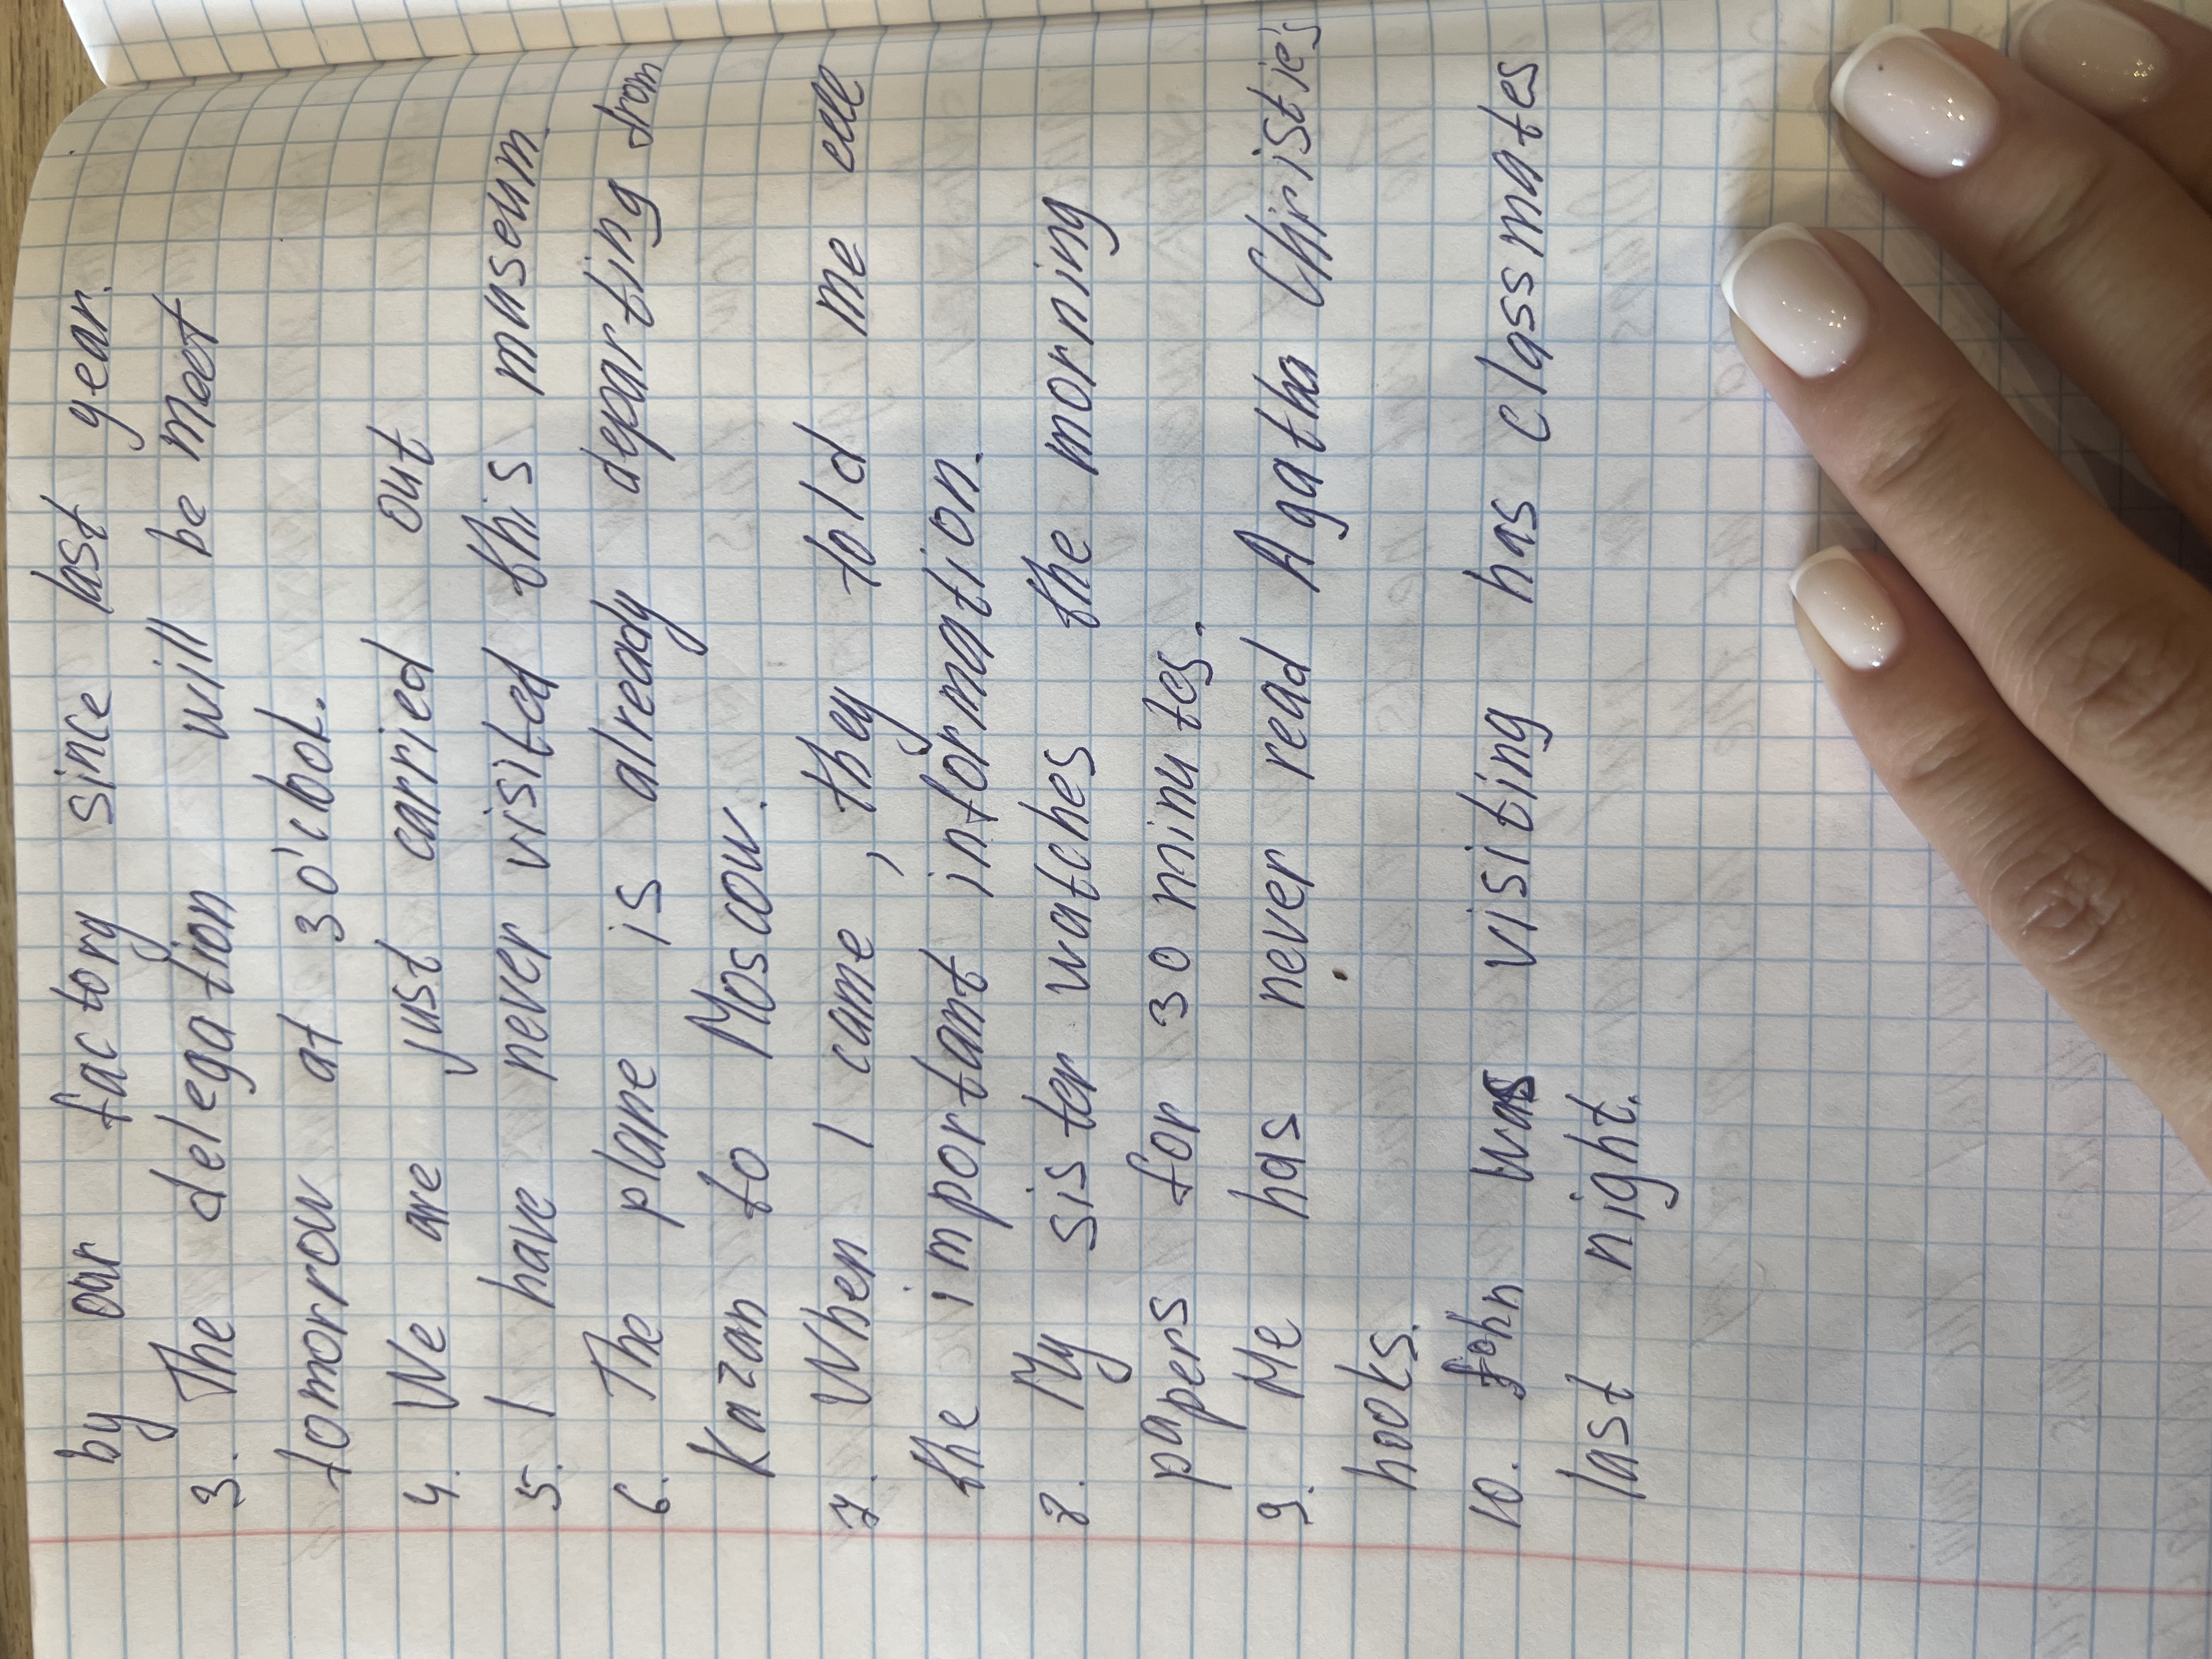 by our factory since last year.
3. The delegation will be meet
tomorrow at 3 o'clook.
4. We are just carried out
5. I have never visited this museum.
6. The plane is already departing from
Kazan to Moscow.
7. When I came, they told me all
the important information.
8. My sister watches the morning
papers for 30 minutes.
9. Me has never read Agatha Christie's
books.
10. John was visiting has classmates
last night.